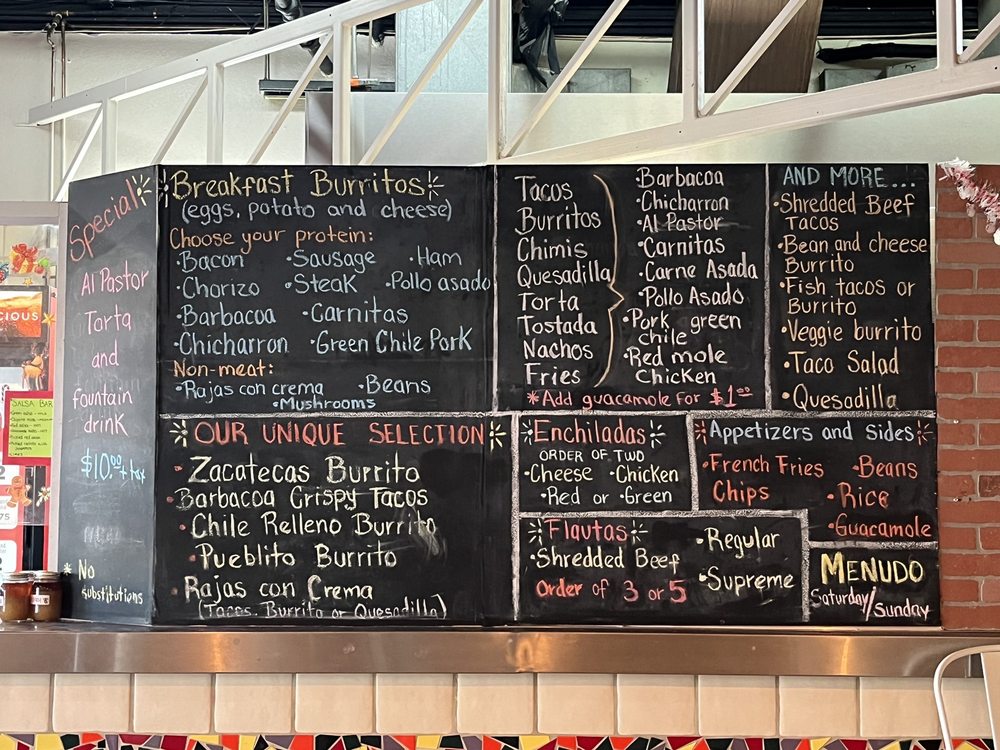 Special
Al Pastor
Torta
and
fountain
drink
$10.00 + tax
* No
substitutions
Breakfast Burritos
(eggs, potato and cheese)
Choose your protein:
Bacon •Sausage •Ham
•Chorizo •Steak •Pollo asado
•Barbacoa •Carnitas
•Chicharron •Green Chile Pork
Non-meat:
•Rajas con crema •Beans
•Mushrooms
Tacos
Burritos
Chimis
Quesadilla
Torta
Tostada
Nachos
Fries
•Barbacoa
•Chicharron
•Al Pastor
•Carnitas
•Carne Asada
•Pollo Asado
•Pork green
chile
•Red mole
Chicken
*Add guacamole for $1.00
AND MORE...
•Shredded Beef
Tacos
•Bean and cheese
Burrito
•Fish tacos or
Burrito
•Veggie burrito
•Taco Salad
•Quesadilla
OUR UNIQUE SELECTION
•Zacatecas Burrito
•Barbacoa Crispy Tacos
•Chile Relleno Burrito
•Pueblito Burrito
•Rajas con Crema
(Tacos, Burrito or Quesadilla)
Enchiladas
ORDER OF TWO
•Cheese •Chicken
•Red or •Green
Appetizers and sides
•French Fries •Beans
Chips •Rice
•Guacamole
Flautas
•Shredded Beef
Order of 3 or 5
•Regular
•Supreme
MENUDO
Saturday/Sunday
CIOUS
SALSA BAR